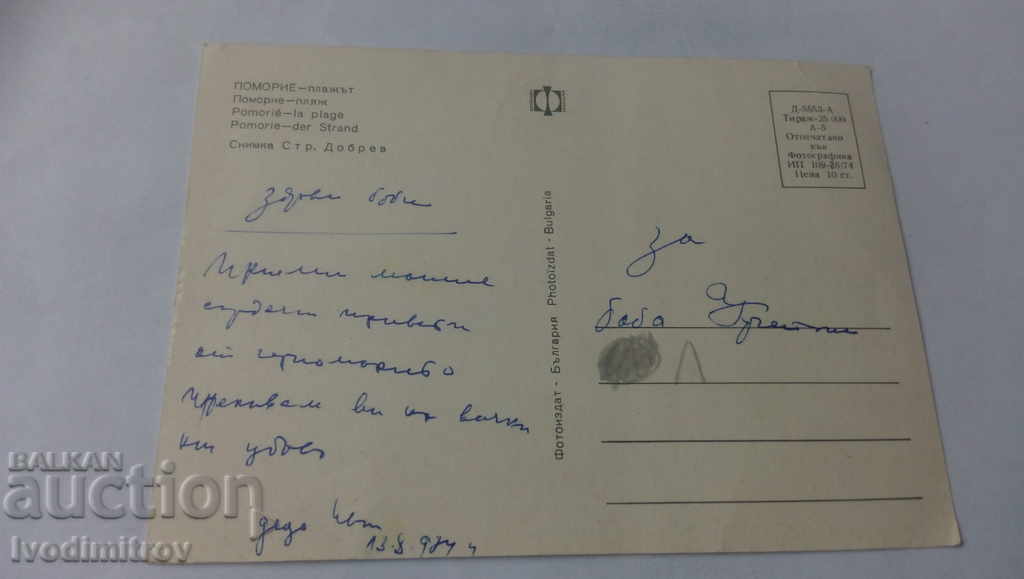 ПОМОРИЕ—плажът
Поморие—пляж
Pomorié—la plage
Pomorie—der Strand
Снимка Стр. Добрев
Д-5553-А
Тираж-25 000
А-5
Отпечатано
във
Фотографика
ИП 109-26/74
Цена 10 ст.
Фотоиздат - България Photoizdat - Bulgaria
Здравей бабо
Приеми моите
сърдечни привети
от черноморието
ви на всички
дядо
за
баба
Л
BALKAN
auction
Ivodimitrov